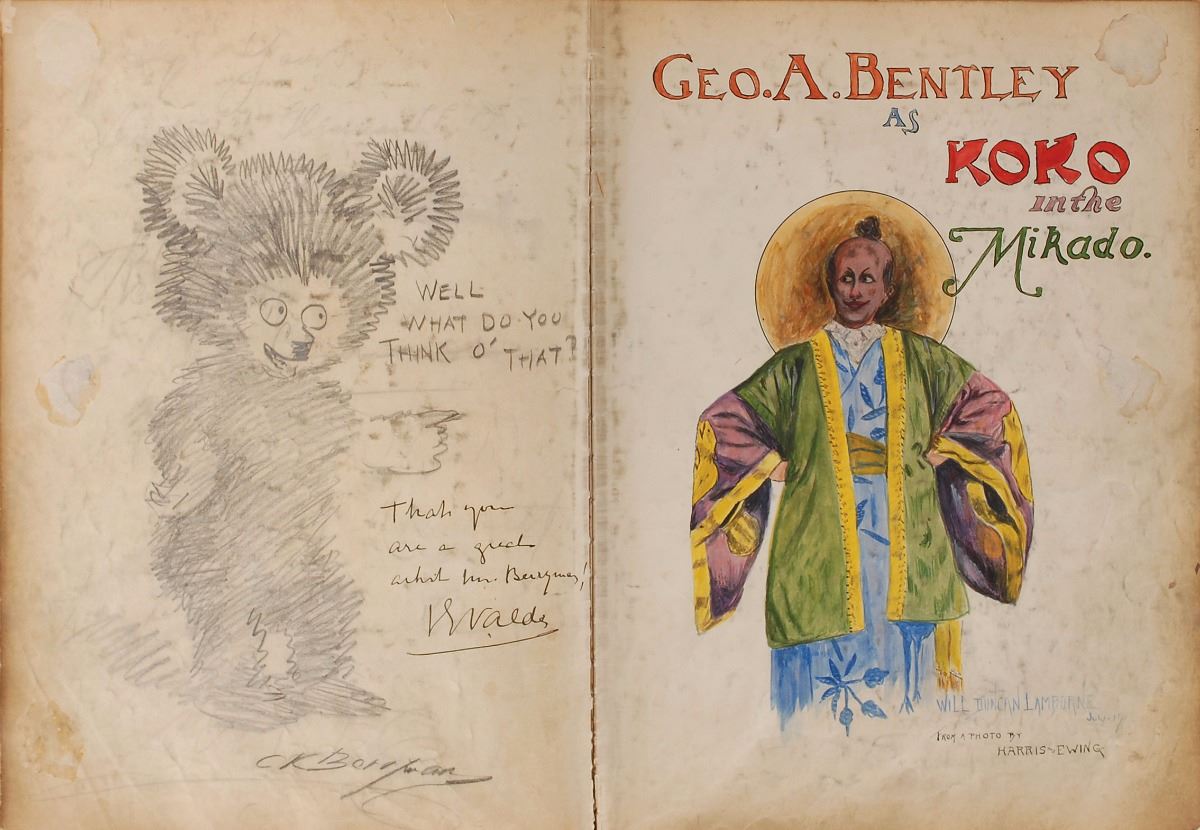 WELL
WHAT DO YOU
THINK O' THAT?
That you
are a great
artist Mr. Berryman!
CK Berryman
GEO. A. BENTLEY
AS
KOKO
in the
Mikado.
WILL DUNCAN LAMBORNE
FROM A PHOTO BY
HARRIS-EWING